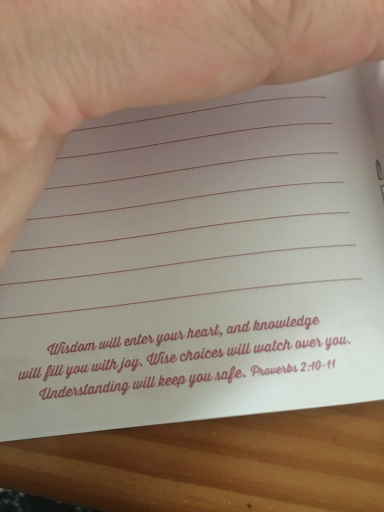 Wisdom will enter your heart, and knowledge
will fill you with joy. Wise choices will watch over you.
Understanding will keep you safe. Proverbs 2:10-11